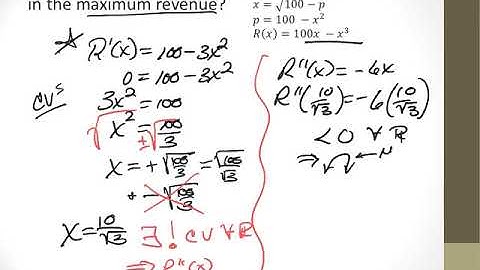 in the maximum revenue?
x = √100 − p
p = 100 − x²
R(x) = 100x − x³
R'(x) = 100 - 3x²
0 = 100 - 3x²
CVs
3x² = 100
√x² = ±√100/3
x = +√100/3 = √100/√3
+ -√100/3
x = 10/√3 ∃! CV ∀ℝ
⇒ R''(x)
R''(x) = -6x
R''(10/√3) = -6(10/√3)
< 0 ∀ ℝ
⇒ ∩ ← M